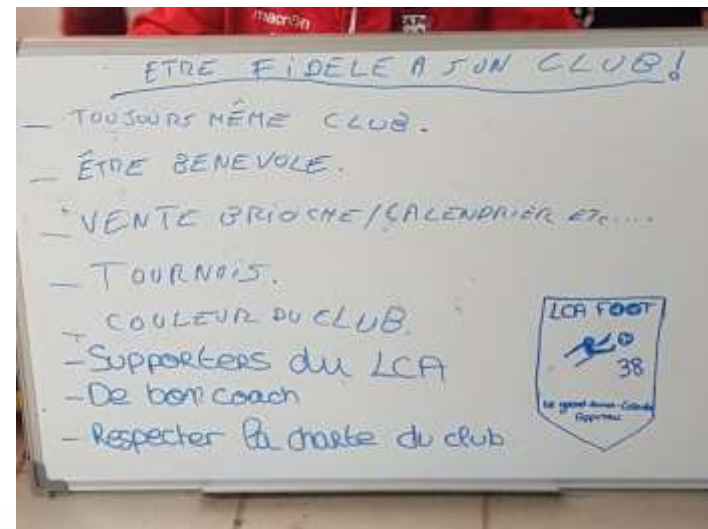 macron
ETRE FIDELE A SON CLUB !
_ TOUJOURS MÊME CLUB.
_ ÊTRE BENEVOLE.
_ VENTE BRIOCHE/CALENDRIER ETC....
_ TOURNOIS.
_ COULEUR DU CLUB.
- Supporters du LCA
- De bon coach
- Respecter la charte du club
LCA FOOT
38
Le grand